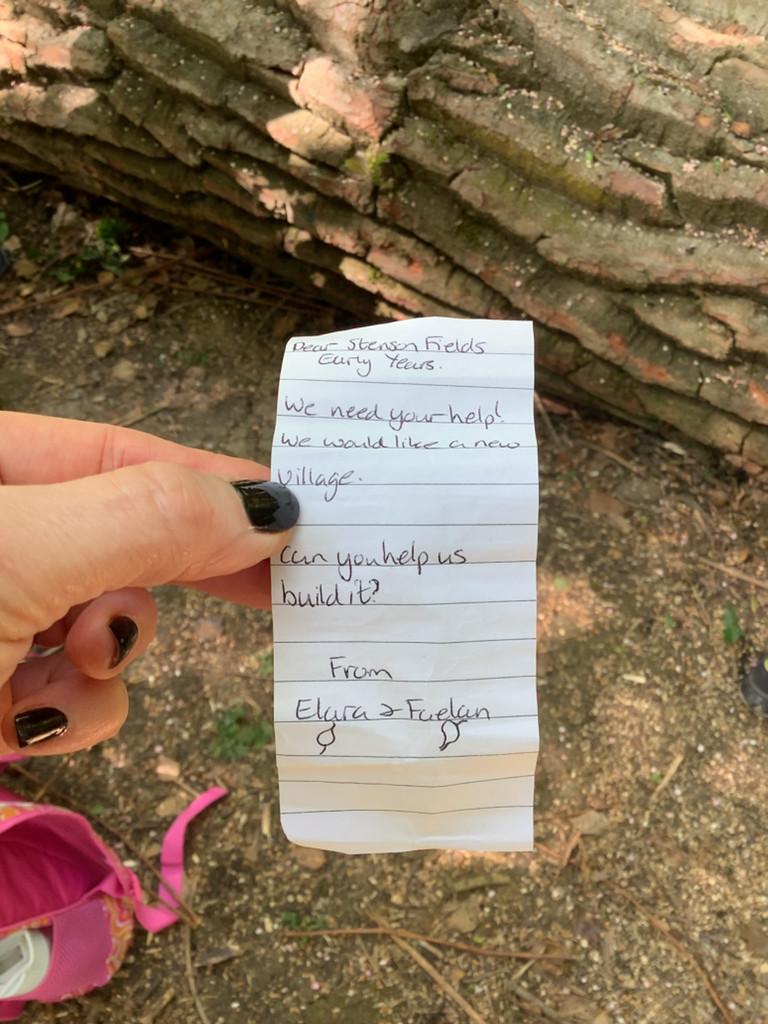 Dear Stenson Fields
Early Years.
We need your help!
We would like a new
village.
Can you help us
build it?
From
Elara & Faelan